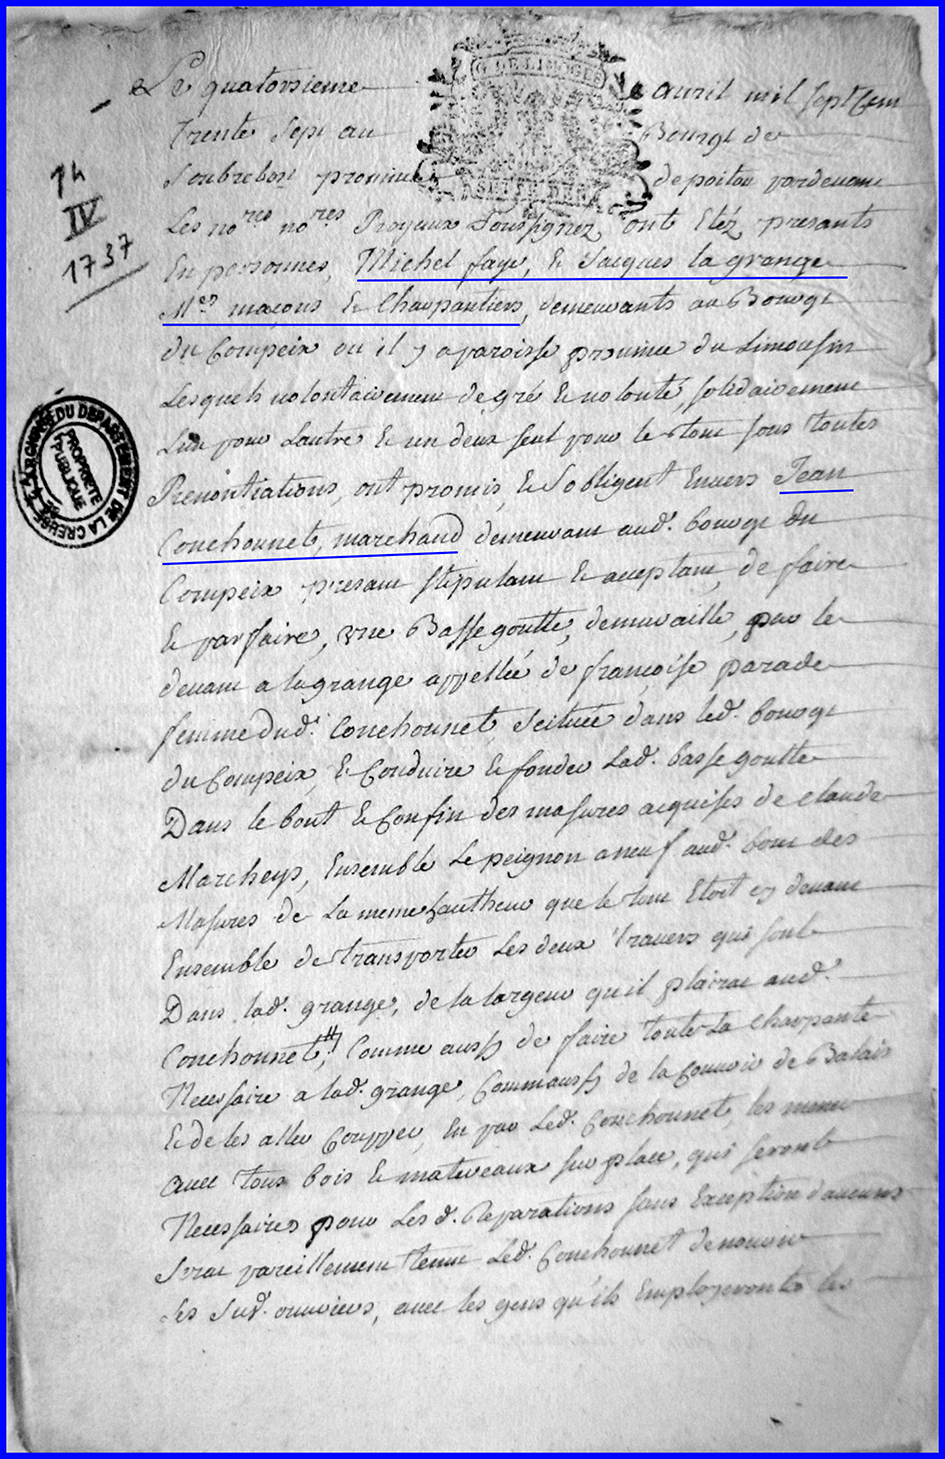 G. DE LIMOGES
Le quatorsieme avril mil sept cent
Trente sept au Bourg de
Soubrebost province de poitou pardevant
Les nores nores Royeaux Soussignez, ont Etéz presants
En personnes, Michel faye, & Jacques la grange
Mes maçons & Charpantiers, demeurants au Bourg
du Compeix ou il y a paroisse province du Limousin
Lesquels volontairement de gré & volonté, solidairement
L'un pour Lautre & un deux seul pour le tout sous toutes
Renontiations, ont promis, & S'obligent Envers Jean
Conchonnet, marchand demeurant aud. bourg du
Compeix presant stipulant & aceptant, de faire
& parfaire, vne Basse goutte, demuraille, par le
devant a la grange appellée de françoise parade
femme dud. Conchonnet, Scituée dans led. bourg
du Compeix, & Conduire & fonder Lad. basse goutte
Dans le bout & Confin des masures acquises de claude
Marcheys, Ensemble Le peignon a neuf aud. bout des
Masures de La meme hautheur que le tout Etoit cy devant
Ensemble de transporter Les deux travers qui sont
Dans lad. grange, de la largeur qu'il plairat aud.
Conchonnet, Comme aussy de faire toute La Charpante
Necessaire a lad. grange, Comm'aussy de la Couvrir de Balais
& de les aller Coupper, En par Led. Conchonnet, les menant
avec tous bois & matereaux sur place, qui seront
Necessaires pour Les d. Reparations sans Exception d'aucuns
Serat pareillement tenut Led. Conchonnet de nourrir
Les Susd. ouvriers, avec les gens qu'ils Employeront les
14
IV
1737
ARCHIVES DU DEPARTEMENT DE LA CREUSE
PROPRIETE
PUBLIQUE